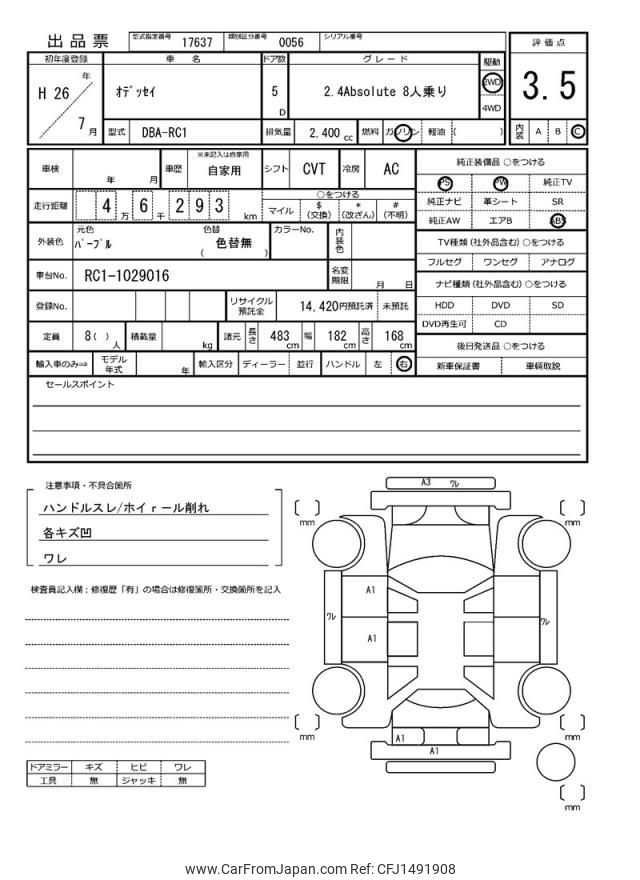 出品票 型式指定番号 17637 類別区分番号 0056 シリアル番号
評価点
3.5
内装 A B C
初年度登録 車名 ドア数 グレード 駆動
H 26 年 7 月
オデッセイ 5 D 2.4Absolute 8人乗り 2WD
4WD
型式 DBA-RC1 排気量 2,400 cc 燃料 ガソリン 軽油 ( )
車検 年 月 車歴 ※未記入は自家用 自家用 シフト CVT 冷房 AC
走行距離 4 万 6 千 2 9 3 km
○をつける
マイル $ (交換) * (改ざん) # (不明)
外装色 元色 パープル 色替 色替無 ( ) カラーNo. 内装色
車台No. RC1-1029016 名変期限 月 日
登録No. リサイクル預託金 14,420円預託済 未預託
定員 8 ( ) 人 積載量 kg 諸元 長さ 483 cm 幅 182 cm 高さ 168 cm
輸入車のみ⇒ モデル年式 年 輸入区分 ディーラー 並行 ハンドル 左 右
純正装備品 ○をつける
PS PW 純正TV
純正ナビ 革シート SR
純正AW エアB ABS
TV種類 (社外品含む) ○をつける
フルセグ ワンセグ アナログ
ナビ種類 (社外品含む) ○をつける
HDD DVD SD
DVD再生可 CD
後日発送品 ○をつける
新車保証書 車輌取説
セールスポイント
注意事項・不具合箇所
ハンドルスレ/ホイｒール削れ
各キズ凹
ワレ
検査員記入欄：修復歴「有」の場合は修復箇所・交換箇所を記入
ドアミラー キズ ヒビ ワレ
工具 無 ジャッキ 無
A3 ワレ
mm
mm
A1
ワレ
A1
ワレ
mm
mm
A1
A1
mm
www.CarFromJapan.com Ref: CFJ1491908